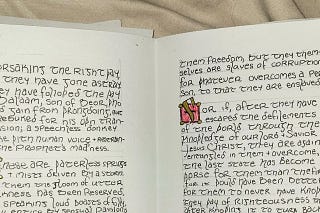 forsaking the right way,
they have gone astray
they have followed the way
Balaam, son of Beor, who
gain from wrongdoing, but
rebuked for his own trans
sion; a speechless donkey
with human voice + restrain
the prophet's madness.
These are waterless springs
mists driven by a storm.
them the gloom of utter
kness has been reserved.
speaking loud boasts of folly,
entice by sensual passions
them freedom, but they them-
selves are slaves of corruption
for whatever overcomes a per
son, to that they are enslaved
For if, after they have
escaped the defilements
of the world through the
knowledge of our Lord & Savior
Jesus Christ, they are again
entangled in them & overcome,
the last state has become
worse for them than the first
For it would have been better
for them to never have know
the way of righteousness th
after knowing it to turn back